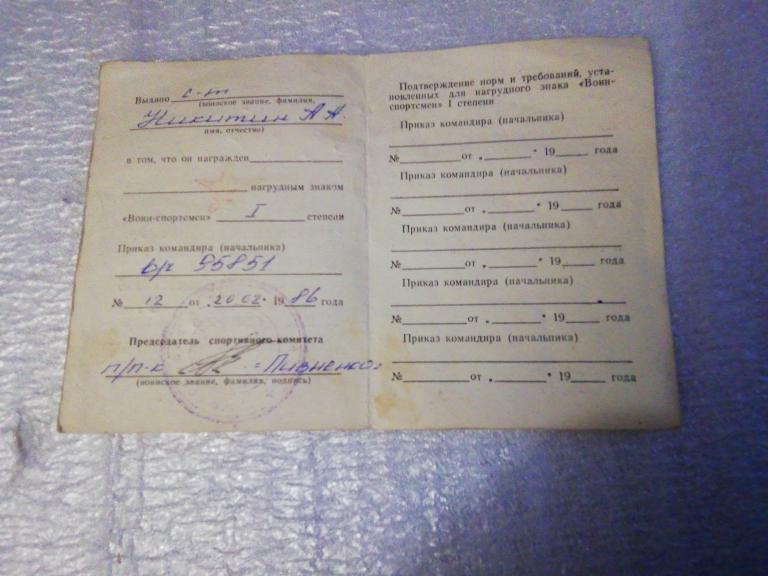 Выдано с-т
(воинское звание, фамилия,
Никитин А А.
имя, отчество)
в том, что он награжден
нагрудным знаком
«Воин-спортсмен» I степени
Приказ командира (начальника)
в/ч 95851
№ 12 от 20 02 1986 года
Председатель спортивного комитета
п/п-к Пивненко
(воинское звание, фамилия, подпись)
Подтверждение норм и требований, уста-
новленных для нагрудного знака «Воин-
спортсмен» I степени
Приказ командира (начальника)
№ от „ " 19 года
Приказ командира (начальника)
№ от „ " 19 года
Приказ командира (начальника)
№ от „ " 19 года
Приказ командира (начальника)
№ от „ " 19 года
Приказ командира (начальника)
№ от „ " 19 года